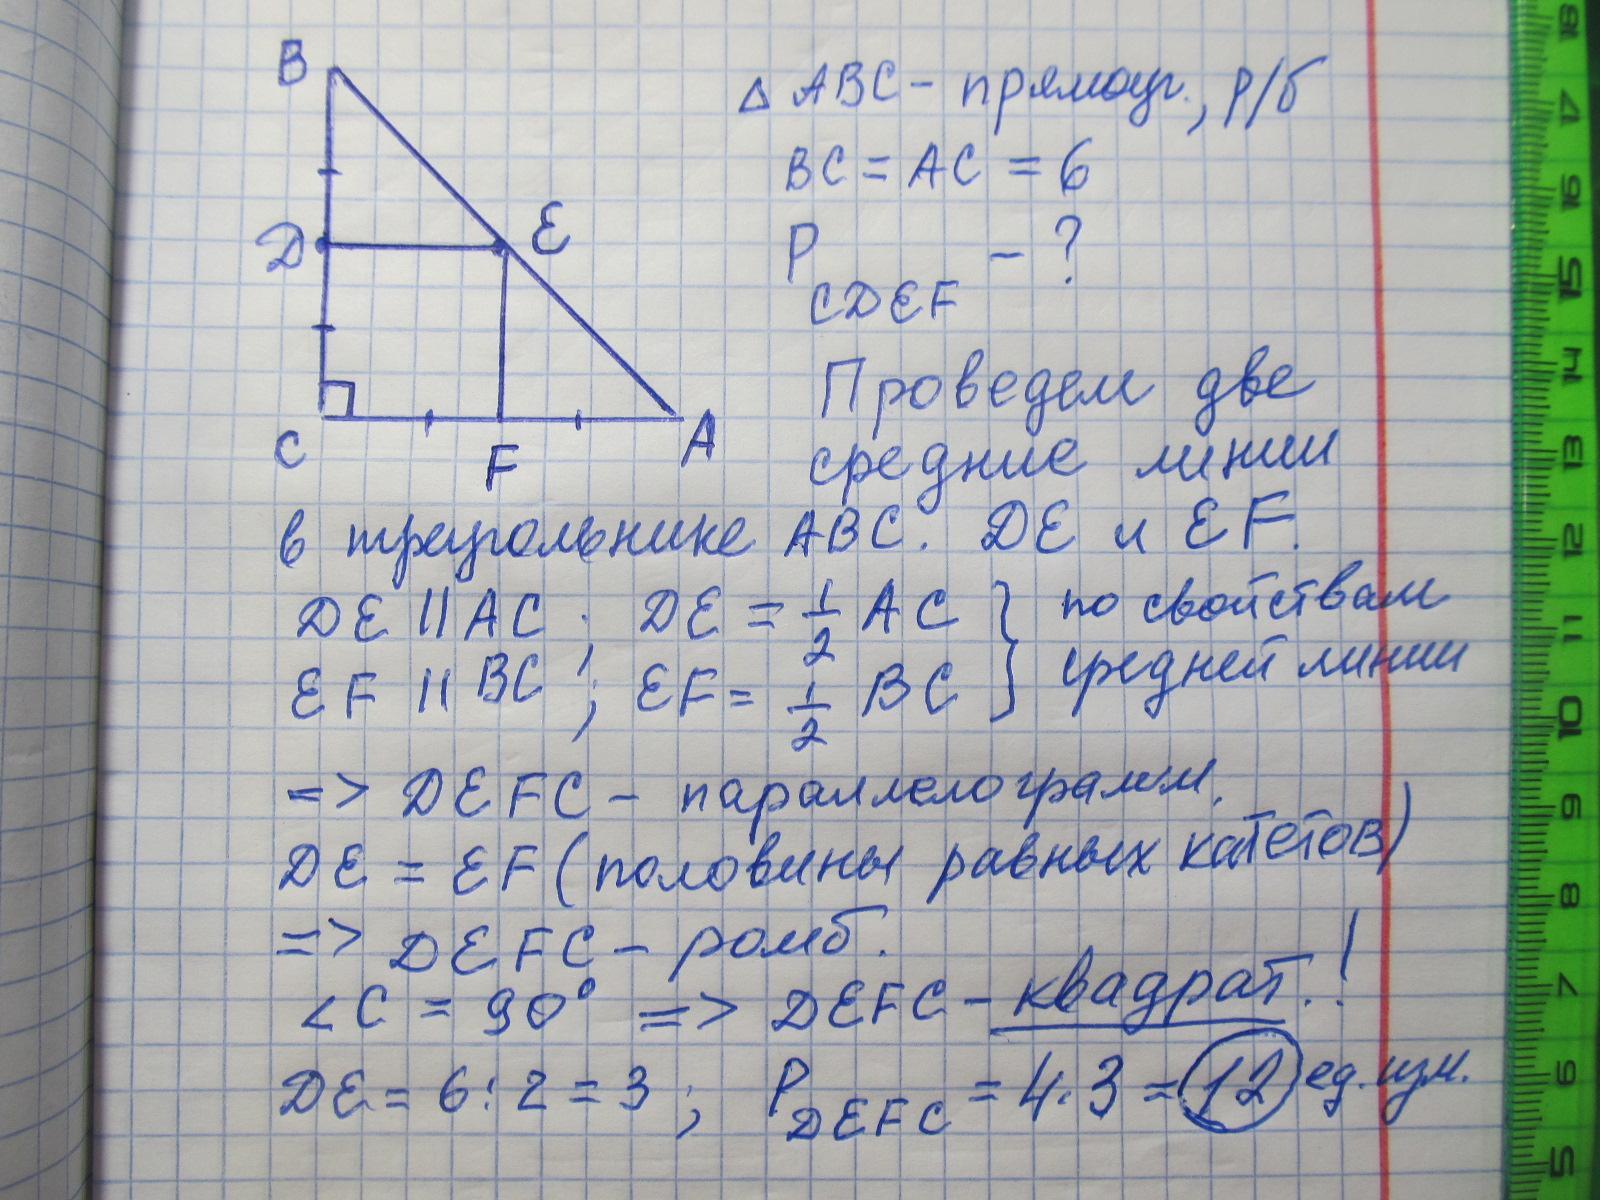 B
D
E
C
F
A
Δ ABC - прямоуг., р/б
BC = AC = 6
P CDEF - ?
Проведем две
средние линии
в треугольнике ABC. DE и EF.
DE || AC ; DE = 1/2 AC } по свойствам
EF || BC ; EF = 1/2 BC } средней линии
=> DEFC - параллелограмм.
DE = EF (половины равных катетов)
=> DEFC - ромб.
∠C = 90° => DEFC - квадрат.!
DE = 6:2 = 3 ; P DEFC = 4·3 = 12 ед. изм.
18
17
16
15
14
13
12
11
10
9
8
7
6
5